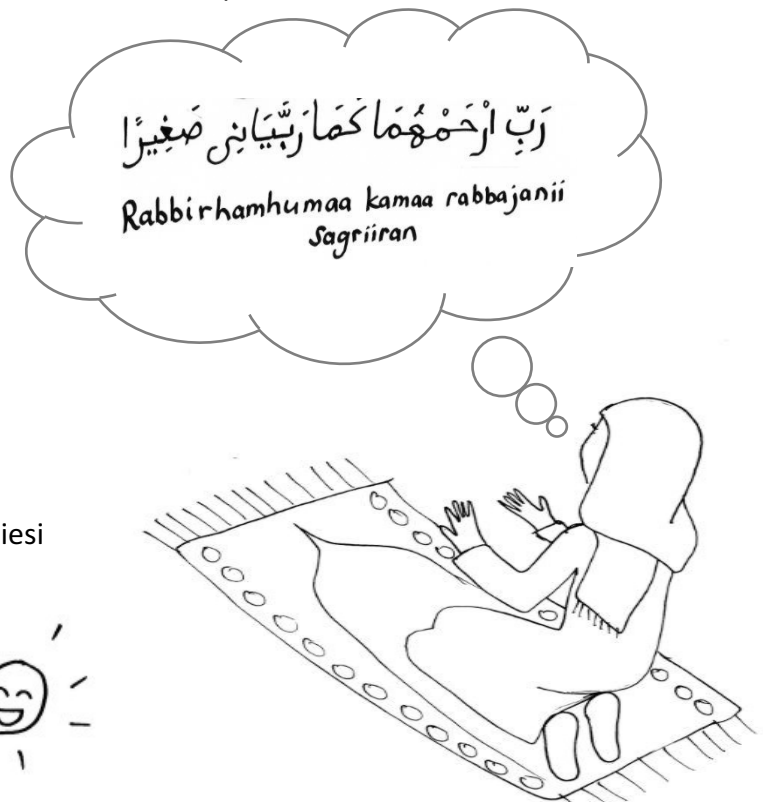 رَبِّ ارْحَمْهُمَا كَمَا رَبَّيَانِى صَغِيرًا
Rabbirhamhumaa kamaa rabbajanii
sagriiran
iesi